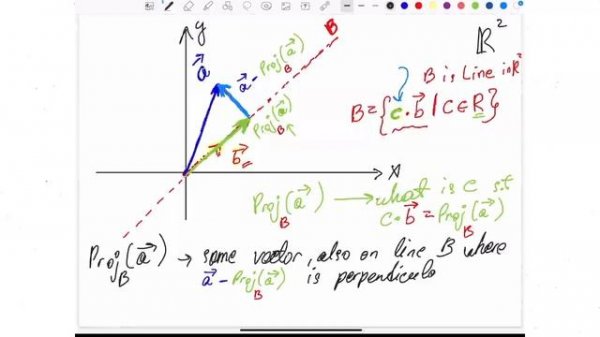 y
ℝ²
B
a⃗
a⃗ - Proj_B(a⃗)
B is Line in ℝ²
Proj_B(a⃗)
B = {c·b⃗ | c∈ℝ}
b⃗
x
Proj_B(a⃗) → what is c s.t
c·b⃗ = Proj_B(a⃗)
Proj_B(a⃗) → some vector, also on line B where
a⃗ - Proj_B(a⃗) is perpendicula